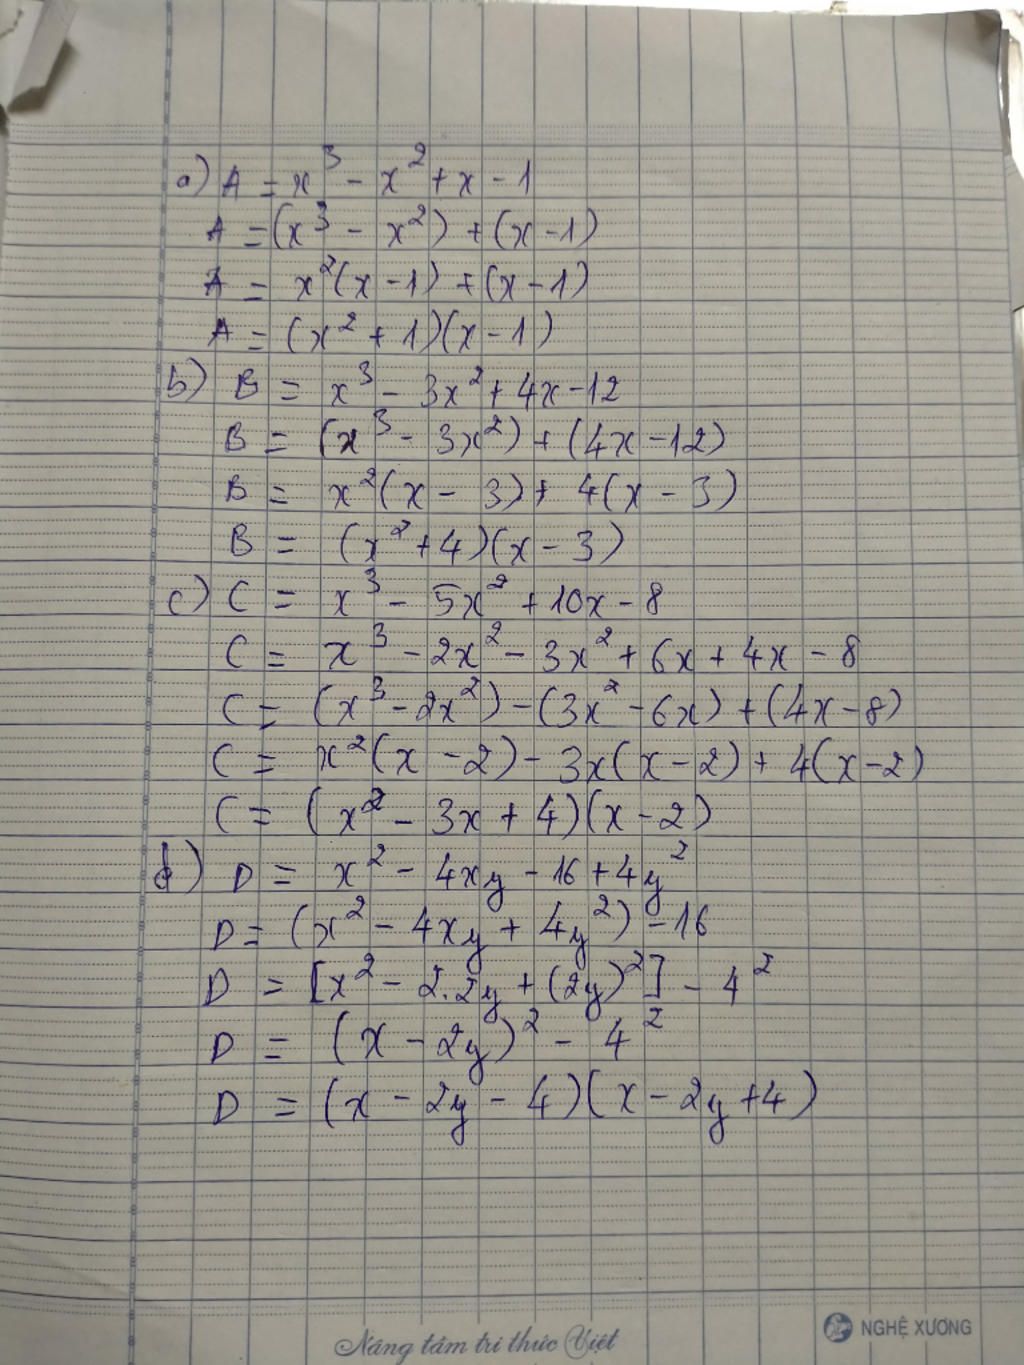 a) A = x³ - x² + x - 1
A = (x³ - x²) + (x - 1)
A = x²(x - 1) + (x - 1)
A = (x² + 1)(x - 1)
b) B = x³ - 3x² + 4x - 12
B = (x³ - 3x²) + (4x - 12)
B = x²(x - 3) + 4(x - 3)
B = (x² + 4)(x - 3)
c) C = x³ - 5x² + 10x - 8
C = x³ - 2x² - 3x² + 6x + 4x - 8
C = (x³ - 2x²) - (3x² - 6x) + (4x - 8)
C = x²(x - 2) - 3x(x - 2) + 4(x - 2)
C = (x² - 3x + 4)(x - 2)
d) D = x² - 4xy - 16 + 4y²
D = (x² - 4xy + 4y²) - 16
D = [x² - 2.2y + (2y)²] - 4²
D = (x - 2y)² - 4²
D = (x - 2y - 4)(x - 2y + 4)
Nâng tầm tri thức Việt
NGHỆ XƯƠNG